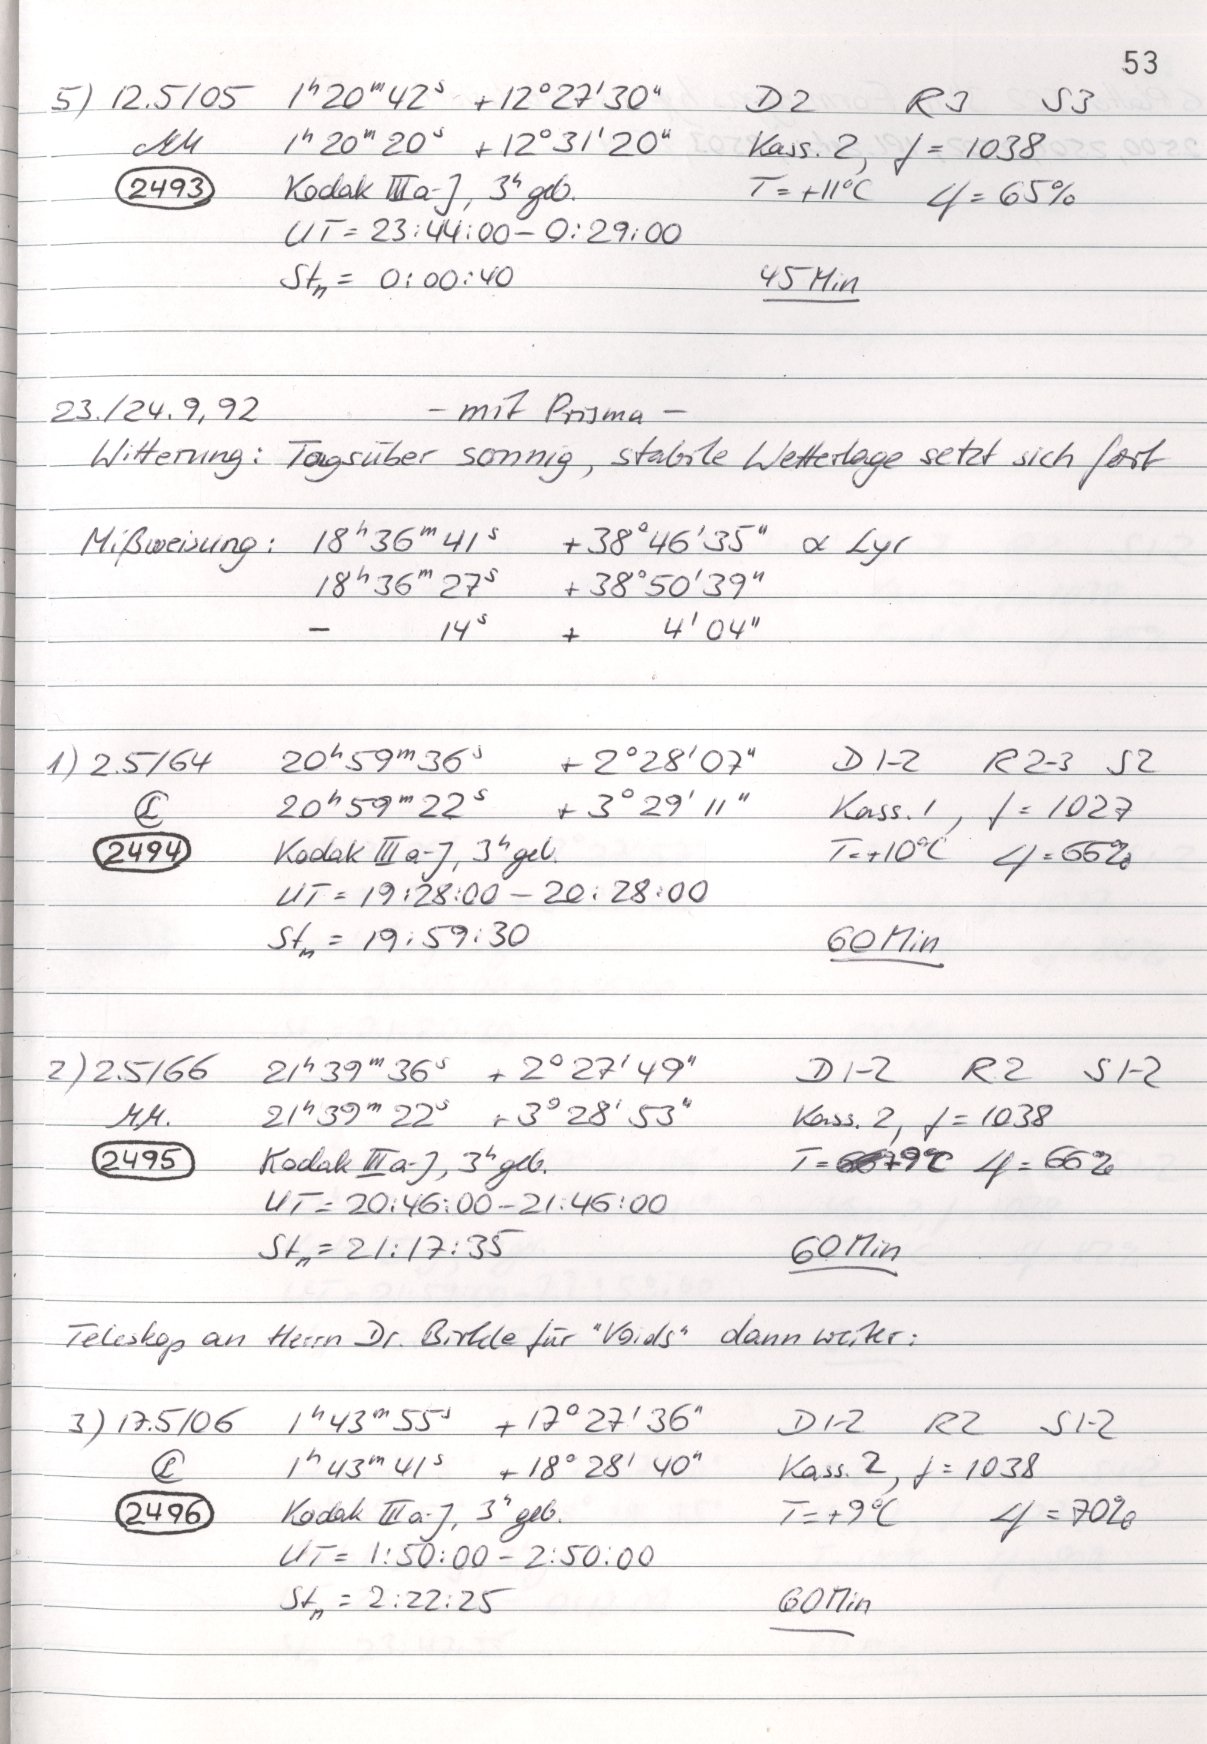 53
5) 12.5/05 1ʰ20ᵐ42ˢ +12°27'30" D2 R3 S3
MM 1ʰ20ᵐ20ˢ +12°31'20" Kass. 2, f = 1038
2493 Kodak IIIa-J, 3ʰ geb. T = +11°C φ = 65%
UT = 23:44:00 – 0:29:00
Stₙ = 0:00:40 45 Min
23./24.9.92 – mit Prisma –
Witterung: Tagsüber sonnig, stabile Wetterlage setzt sich fort
Mißweisung: 18ʰ36ᵐ41ˢ +38°46'35" α Lyr
18ʰ36ᵐ27ˢ +38°50'39"
– 14ˢ + 4'04"
1) 2.5/64 20ʰ59ᵐ36ˢ +2°28'07" D1-2 R2-3 S2
20ʰ59ᵐ22ˢ +3°29'11" Kass. 1, f = 1027
2494 Kodak IIIa-J, 3ʰ geb. T = +10°C φ = 66%
UT = 19:28:00 – 20:28:00
Stₙ = 19:59:30 60 Min
2) 2.5/66 21ʰ39ᵐ36ˢ +2°27'49" D1-2 R2 S1-2
MM. 21ʰ39ᵐ22ˢ +3°28'53" Kass. 2, f = 1038
2495 Kodak IIIa-J, 3ʰ geb. T = +9°C φ = 66%
UT = 20:46:00 – 21:46:00
Stₙ = 21:17:35 60 Min
Teleskop an Herrn Dr. Birkle für "Voids" dann weiter:
3) 17.5/06 1ʰ43ᵐ55ˢ +17°27'36" D1-2 R2 S1-2
1ʰ43ᵐ41ˢ +18°28'40" Kass. 2, f = 1038
2496 Kodak IIIa-J, 3ʰ geb. T = +9°C φ = 70%
UT = 1:50:00 – 2:50:00
Stₙ = 2:22:25 60 Min